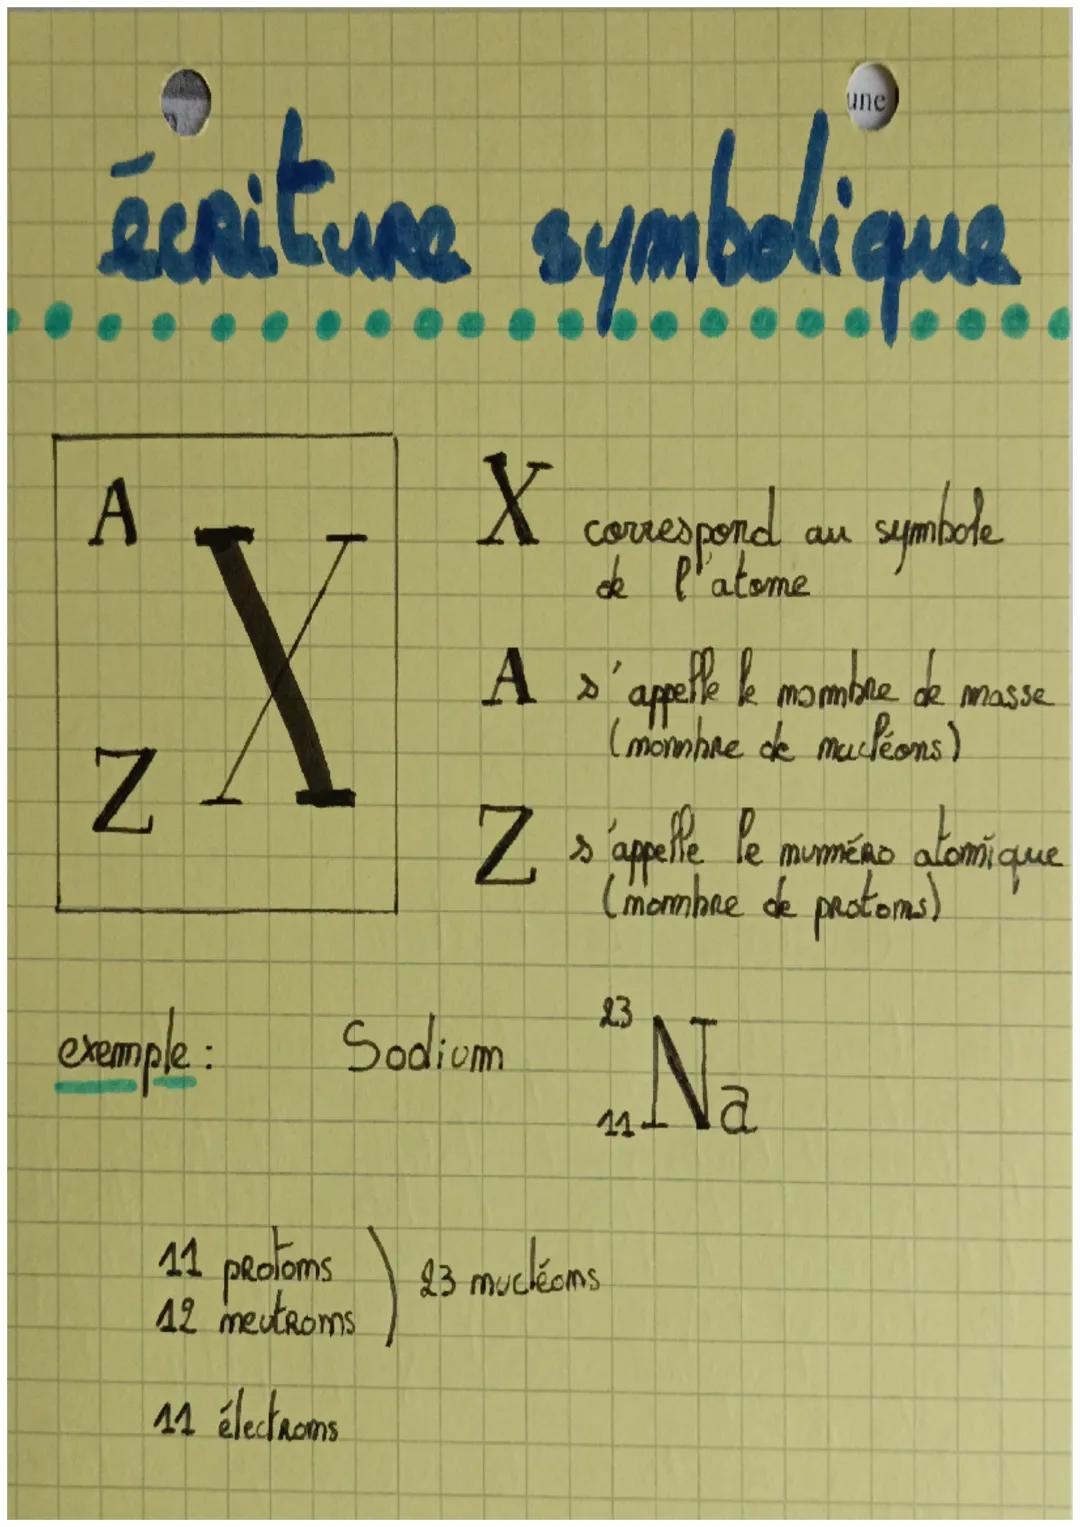 une
écriture symbolique
A
X
Z
X correspond au symbole
de l'atome
A s'appelle le nombre de masse
(nombre de nucléons)
Z s'appelle le numéro atomique
(nombre de protons)
exemple : Sodium 23 11 Na
11 protons
12 neutrons
) 23 nucléons
11 électrons